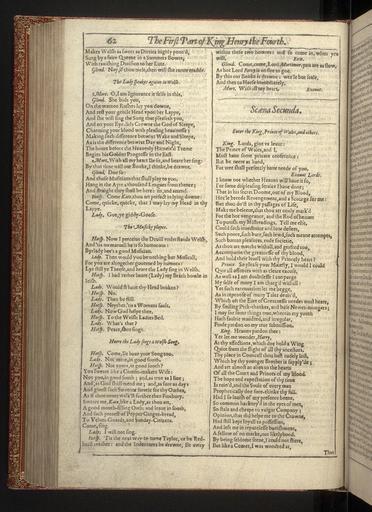 62 The First Part of King Henry the Fourth.
Makes Welsh as sweet as Ditties highly penn'd,
Sung by a faire Queene in a Summers Bowre,
With ravishing Division to her Lute.
Glend. Nay, if thou melt, then will she runne madde.
The Lady speakes againe in Welsh.
Mort. O, I am Ignorance it selfe in this.
Glend. She bids you,
On the wanton Rushes lay you downe,
And rest your gentle Head upon her Lappe,
And she will sing the Song that pleaseth you,
And on your Eye-lids Crowne the God of Sleepe,
Charming your blood with pleasing heavinesse;
Making such difference betwixt Wake and Sleepe,
As is the difference betwixt Day and Night,
The houre before the Heavenly Harneis'd Teeme
Begins his Golden Progresse in the East.
Mort. With all my heart Ile sit, and heare her sing:
By that time will our Booke, I thinke, be drawne.
Glend. Doe so:
And those Musitians that shall play to you,
Hang in the Ayre a thousand Leagues from thence;
And straight they shall be here: sit, and attend.
Hotsp. Come Kate, thou art perfect in lying downe:
Come, quicke, quicke, that I may lay my Head in thy
Lappe.
Lady. Goe, ye giddy-Goose.
The Musicke playes.
Hotsp. Now I perceive the Devill understands Welsh,
And 'tis no marvell he is so humorous:
Byrlady hee's a good Musitian.
Lady. Then would you be nothing but Musicall,
For you are altogether governed by humors:
Lye still ye Theefe, and heare the Lady sing in Welsh.
Hotsp. I had rather heare (Lady) my Brach howle in
Irish.
Lady. Would'st have thy Head broken?
Hotsp. No.
Lady. Then be still.
Hotsp. Neyther, 'tis a Womans fault.
Lady. Now God helpe thee.
Hotsp. To the Welsh Ladies Bed.
Lady. What's that?
Hotsp. Peace, shee sings.
Heere the Lady sings a Welsh Song.
Hotsp. Come, Ile have your Song too.
Lady. Not mine, in good sooth.
Hotsp. Not yours, in good sooth?
You sweare like a Comfit-makers Wife:
Not you, in good sooth; and, as true as I live;
And, as God shall mend me; and, as sure as day:
And givest such Sarcenet suretie for thy Oathes,
As if thou never walk'st further then Finsbury.
Sweare me, Kate, like a Lady, as thou art,
A good mouth-filling Oath: and leave in sooth,
And such protest of Pepper Ginger-bread,
To Velvet-Guards, and Sunday-Citizens.
Come, sing.
Lady. I will not sing.
Hotsp. 'Tis the next way to turne Taylor, or be Red-
brest teacher: and the Indentures be drawne, Ile away
within these two howres: and so come in, when you
will. Exit.
Glend. Come, come, Lord Mortimer, you are as slow,
As hot Lord Percy is on fire to goe.
By this our Booke is drawne: wee'le but seale,
And then to Horse immediately.
Mort. With all my heart. Exeunt.
Scæna Secunda.
Enter the King, Prince of Wales, and others.
King. Lords, give us leave:
The Prince of Wales, and I,
Must have some private conference:
But be neere at hand,
For wee shall presently have neede of you.
Exeunt Lords.
I know not whether Heaven will have it so,
For some displeasing service I have done;
That in his secret Doome, out of my Blood,
Hee'le breede Revengement, and a Scourge for me:
But thou do'st in thy passages of Life,
Make me beleeve, that thou art onely mark'd
For the hot vengeance, and the Rod of heaven
To punish my Mistreadings. Tell me else,
Could such inordinate and low desires,
Such poore, such bare, such lewd, such meane attempts,
Such barren pleasures, rude societie,
As thou art matcht withall, and grafted too,
Accompanie the greatnesse of thy blood,
And hold their levell with thy Princely heart?
Prince. So please your Majesty, I would I could
Quit all offences with as cleare excuse,
As well as I am doubtlesse I can purge
My selfe of many I am charg'd withall:
Yet such extenuation let me begge,
As in reproofe of many Tales devis'd,
Which oft the Eare of Greatnesse needes must heare,
By smiling Pick-thankes, and base Newes-mongers;
I may for some things true, wherein my youth
Hath faultie wandred, and irregular,
Finde pardon on my true submission.
King. Heaven pardon thee:
Yet let me wonder, Harry,
At thy affections, which doe hold a Wing
Quite from the flight of all thy ancestors.
Thy place in Councell thou hast rudely lost,
Which by thy younger Brother is supply'de;
And art almost an alien to the hearts
Of all the Court and Princes of my blood.
The hope and expectation of thy time
Is ruin'd, and the Soule of every man
Prophetically doe fore-thinke thy fall.
Had I so lavish of my presence beene,
So common hackney'd in the eyes of men,
So stale and cheape to vulgar Company;
Opinion, that did helpe me to the Crowne,
Had still kept loyall to possession,
And left me in reputelesse banishment,
A fellow of no marke, nor likelyhood.
By being seldome seene, I could not stirre,
But like a Comet, I was wondred at,
That